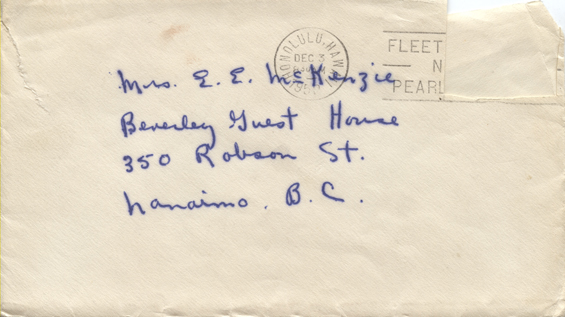 HONOLULU, HAWAII
DEC 3
FLEET
N
PEARL
Mrs. E. E. McKenzie
Beverley Guest House
350 Robson St.
Nanaimo. B.C.